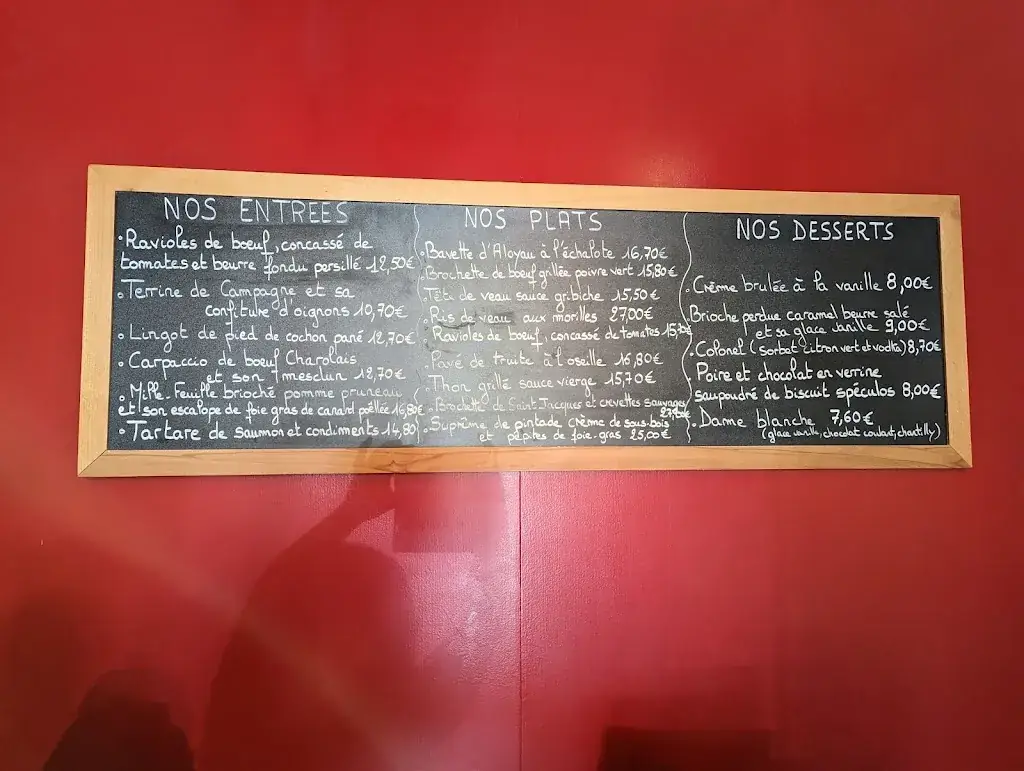 NOS ENTREES
• Ravioles de bœuf, concassé de
tomates et beurre fondu persillé 12,50€
• Terrine de Campagne et sa
confiture d'oignons 10,70€
• Lingot de pied de cochon pané 12,70€
• Carpaccio de bœuf Charolais
et son mesclun 12,70€
• Mille-Feuille brioché pomme pruneau
et son escalope de foie gras de canard poêlée 16,80€
• Tartare de saumon et condiments 14,80
NOS PLATS
• Bavette d'Aloyau à l'échalote 16,70€
Brochette de bœuf grillée poivre vert 15,80€
• Tête de veau sauce gribiche 15,50€
• Ris de veau aux morilles 27,00€
Ravioles de bœuf, concassé de tomates 15,70€
• Pavé de truite à l'oseille 16,80€
• Thon grillé sauce vierge 15,70€
• Brochette de Saint Jacques et crevettes sauvages
• Suprême de pintade crème de sous-bois
et pépites de foie-gras 25,00€
NOS DESSERTS
• Crème brulée à la vanille 8,00€
Brioche perdue caramel beurre salé
et sa glace vanille 9,00€
• Colonel (sorbet citron vert et vodka) 8,70€
• Poire et chocolat en verrine
saupoudré de biscuit spéculos 8,00€
• Dame blanche 7,60€
(glace vanille, chocolat coulant, chantilly)